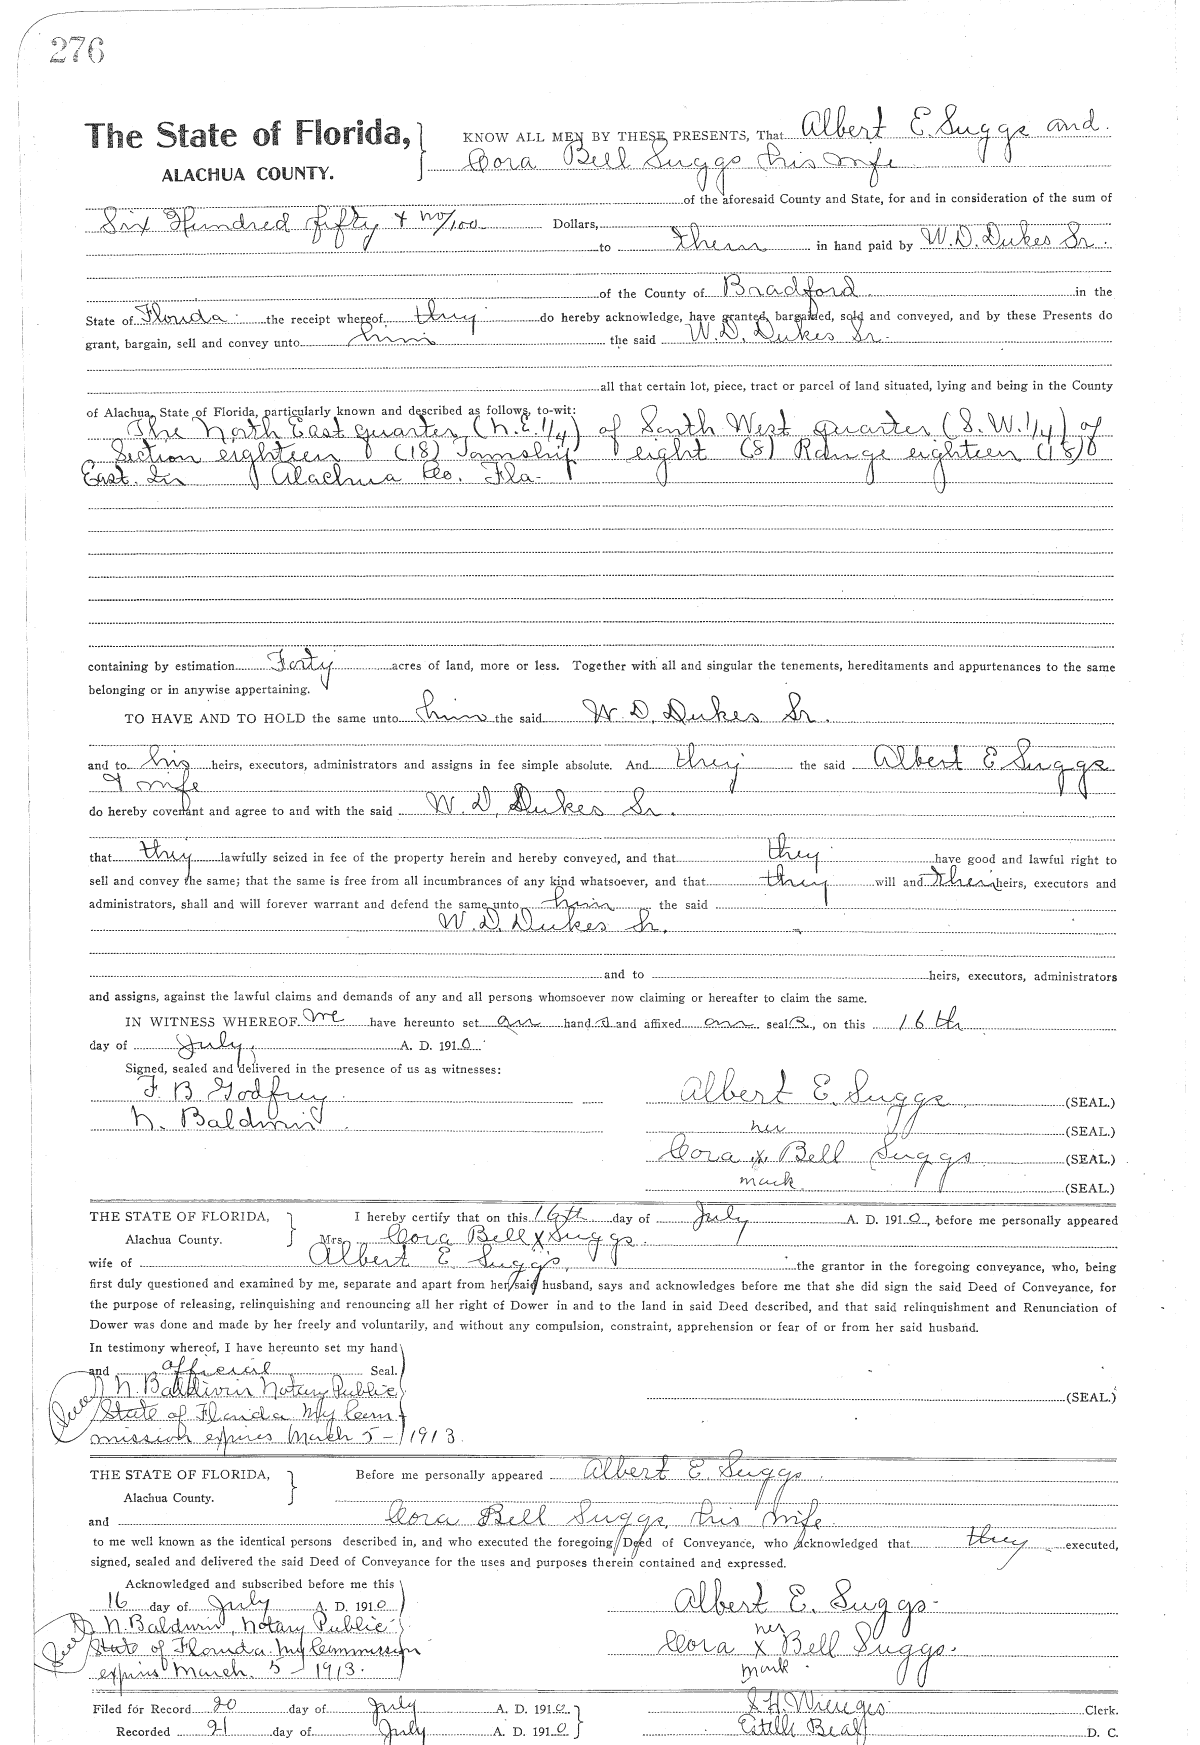 276
The State of Florida, KNOW ALL MEN BY THESE PRESENTS, That Albert E. Suggs and
ALACHUA COUNTY. Cora Bell Suggs his wife
of the aforesaid County and State, for and in consideration of the sum of
Six Hundred fifty & no/100 Dollars,
to them in hand paid by W. D. Dukes Sr.
of the County of Bradford in the
State of Florida the receipt whereof they do hereby acknowledge, have granted, bargained, sold and conveyed, and by these Presents do
grant, bargain, sell and convey unto him the said W. D. Dukes Sr.
all that certain lot, piece, tract or parcel of land situated, lying and being in the County
of Alachua, State of Florida, particularly known and described as follows, to-wit:
The North East quarter (N.E. 1/4) of South West quarter (S.W. 1/4) of
Section eighteen (18) Township eight (8) Range eighteen (18)
East. In Alachua Co. Fla-
containing by estimation Forty acres of land, more or less. Together with all and singular the tenements, hereditaments and appurtenances to the same
belonging or in anywise appertaining.
TO HAVE AND TO HOLD the same unto him the said W. D. Dukes Sr.
and to his heirs, executors, administrators and assigns in fee simple absolute. And they the said Albert E Suggs
& wife
do hereby covenant and agree to and with the said W. D. Dukes Sr.
that they lawfully seized in fee of the property herein and hereby conveyed, and that they have good and lawful right to
sell and convey the same; that the same is free from all incumbrances of any kind whatsoever, and that they will and their heirs, executors and
administrators, shall and will forever warrant and defend the same unto him the said
W. D. Dukes Sr.
and to heirs, executors, administrators
and assigns, against the lawful claims and demands of any and all persons whomsoever now claiming or hereafter to claim the same.
IN WITNESS WHEREOF we have hereunto set our hands and affixed our seals, on this 16th
day of July, A. D. 1910
Signed, sealed and delivered in the presence of us as witnesses:
F. B Godfrey Albert E. Suggs (SEAL.)
N. Baldwin her (SEAL.)
Cora x Bell Suggs (SEAL.)
mark (SEAL.)
THE STATE OF FLORIDA, I hereby certify that on this 16th day of July A. D. 1910, before me personally appeared
Alachua County. Mrs. Cora Bell x Suggs.
wife of Albert E Suggs, the grantor in the foregoing conveyance, who, being
first duly questioned and examined by me, separate and apart from her said husband, says and acknowledges before me that she did sign the said Deed of Conveyance, for
the purpose of releasing, relinquishing and renouncing all her right of Dower in and to the land in said Deed described, and that said relinquishment and Renunciation of
Dower was done and made by her freely and voluntarily, and without any compulsion, constraint, apprehension or fear of or from her said husband.
In testimony whereof, I have hereunto set my hand
and official Seal.
N. Baldwin Notary Public
State of Florida My Com- (SEAL.)
mission expires March 5- 1913.
THE STATE OF FLORIDA, Before me personally appeared Albert E. Suggs
Alachua County.
and Cora Bell Suggs, his wife
to me well known as the identical persons described in, and who executed the foregoing Deed of Conveyance, who acknowledged that they executed,
signed, sealed and delivered the said Deed of Conveyance for the uses and purposes therein contained and expressed.
Acknowledged and subscribed before me this
16 day of July A. D. 1910 Albert E. Suggs-
N. Baldwin, Notary Public her
State of Florida. My Commission Cora x Bell Suggs.
expires March. 5- 1913. mark.
Filed for Record 20 day of July A. D. 1910. S. H. Wienges Clerk.
Recorded 21 day of July A. D. 1910 Estelle Beaty D. C.